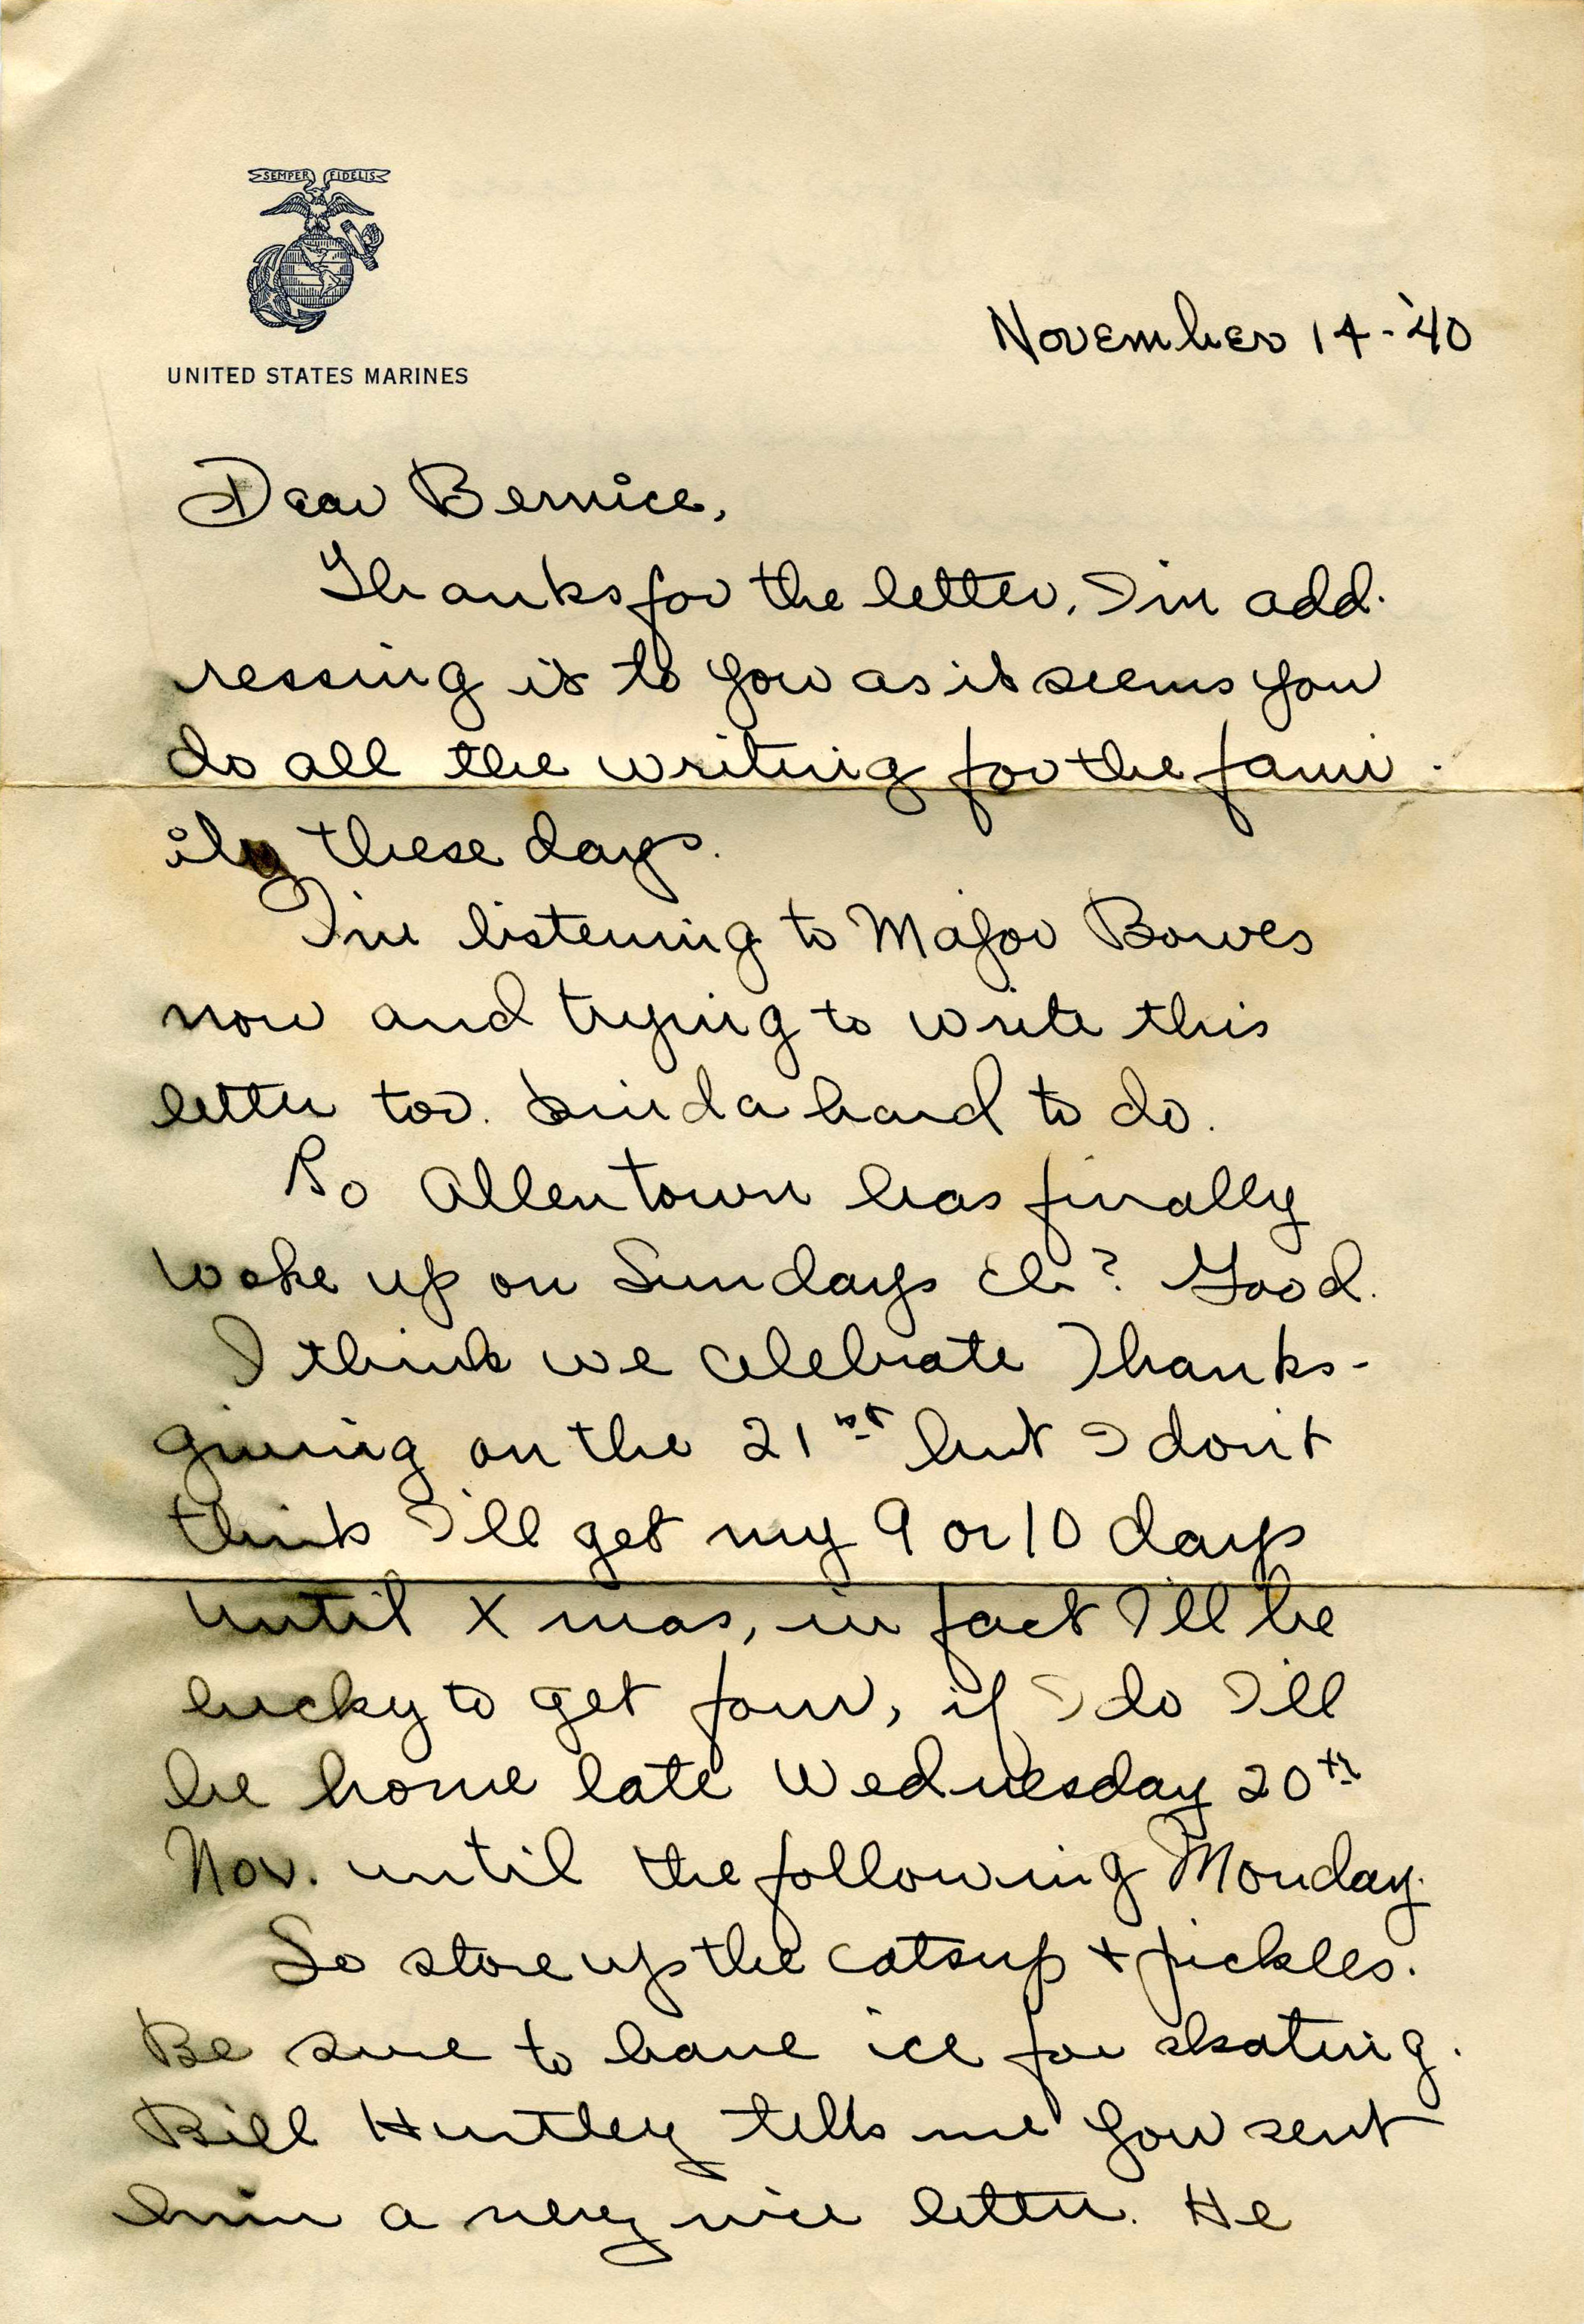 SEMPER FIDELIS
UNITED STATES MARINES
November 14-'40
Dear Bernice,
Thanks for the letter, I'm add-
ressing it to you as it seems you
do all the writing for the fam-
ily these days.
I'm listening to Major Bowes
now and trying to write this
letter too. Kinda hard to do.
So Allentown has finally
woke up on Sundays eh? Good.
I think we celebrate Thanks-
giving on the 21st but I don't
think I'll get my 9 or 10 days
until Xmas, in fact I'll be
lucky to get four, if I do I'll
be home late Wednesday 20th
Nov. until the following Monday.
So store up the catsup + pickles.
Be sure to have ice for skating.
Bill Huntley tells me you sent
him a very nice letter. He